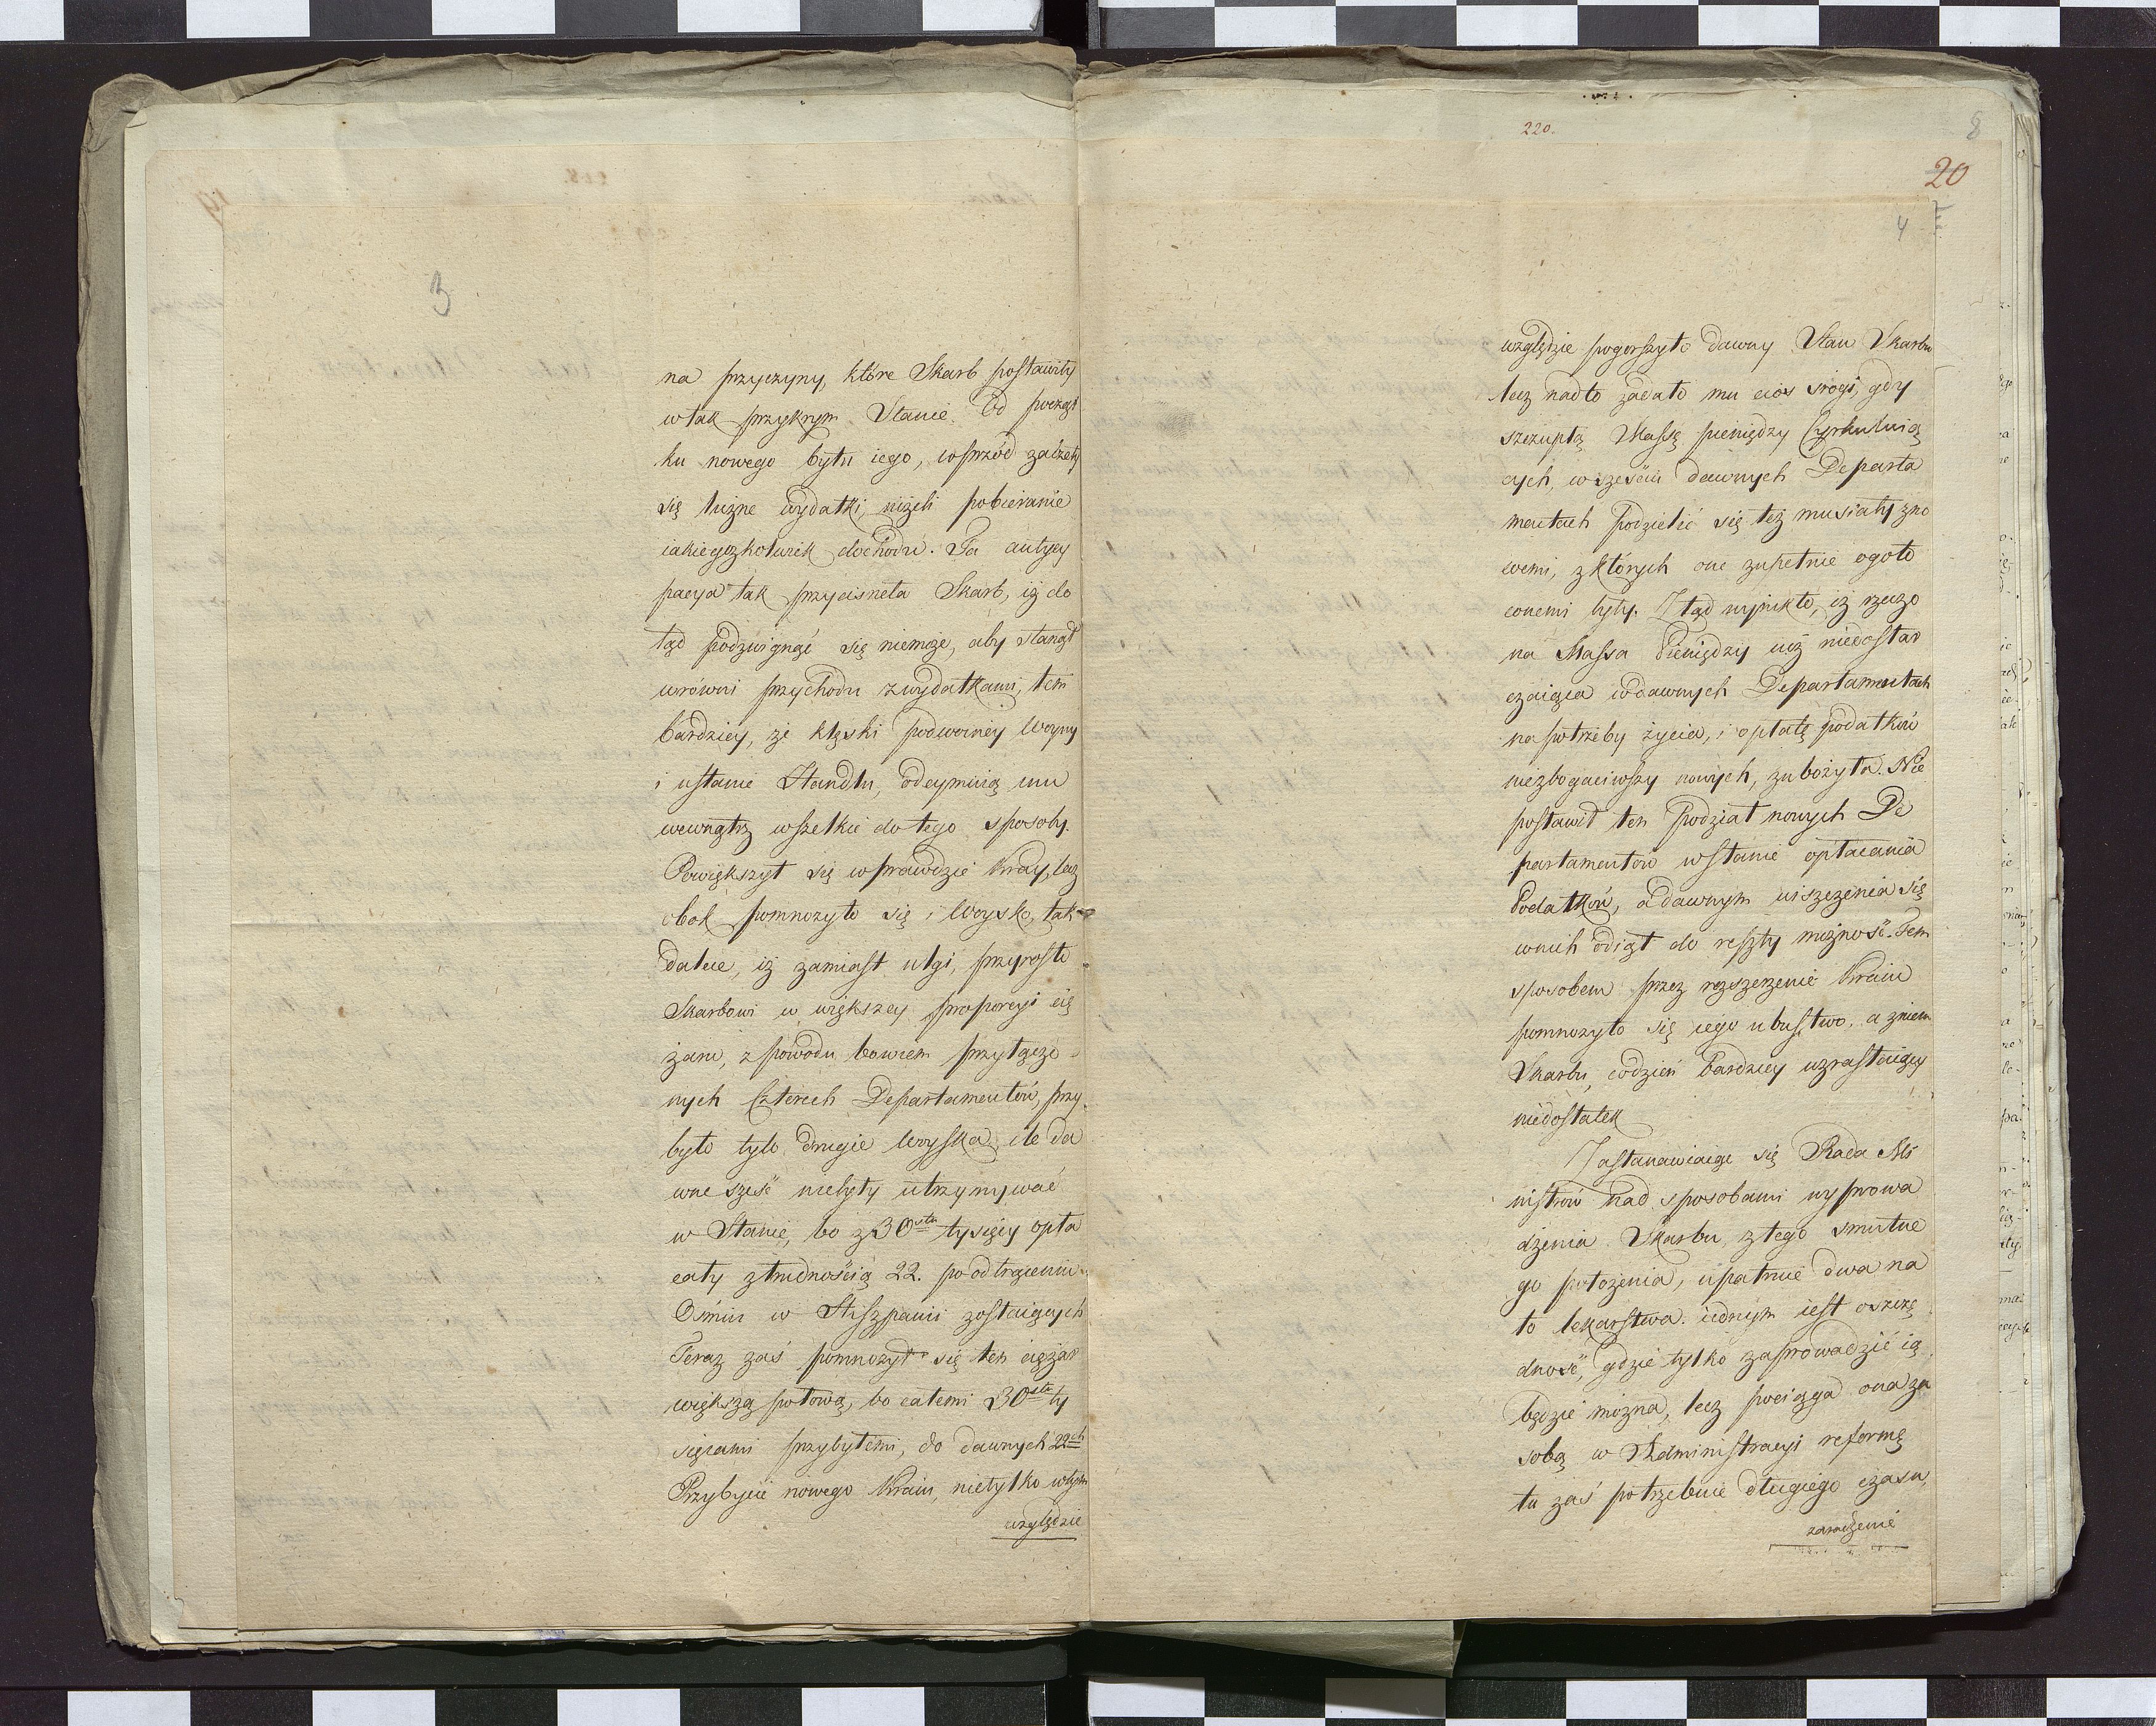 3
na przyczyny, które Skarb postawiły
w tak przykrym Stanie. Od począt
ku nowego bytu iego, wprzód zaczęły
się liczne wydatki, niżeli pobieranie
iakiegożkolwiek dochodu. Ta antycy
pacya tak przycisnęła Skarb, iż do
tąd podzwignąć się niemoże, aby stanął
wrówni przychodu z wydatkami, tem
bardziey, że klęski podwóiney Woyny
i ustanie Handlu, odeymuią mu
wewnątrz wszelkie do tego sposoby.
Powiększył się wprawdzie Kray, lecz
obok pomnożyło się i Woysko, tak
dalece, iż zamiast ulgi, przyrosło
Skarbowi w większey proporcyi cię
żaru, z powodu bowiem przyłączo
nych Czterech Departamentów, przy
było tyle drugie Woyska, ile da
wne sześć niebyły utrzymywać
w Stanie, bo z 30stu tysięcy opła
cały z trudnością 22. po odtrąceniu
Ośmiu w Hiszpanii zostaiących
Teraz zaś pomnożył się ten ciężar
większą połową, bo całemi 30stu ty
sięcami przybyłemi, do dawnych 22ch
Przybycie nowego Kraiu, nietylko wtym
względzie
220.
8
20
4
względzie pogorszyło dawny Stan Skarbu
lecz nadto zadało mu cios srogi, gdy
szczupłą Massę pieniędzy Cyrkuluią
cych, w sześciu dawnych Departa
mentach podzielić się też musiały z no
wemi, z których one zupełnie ogoło
conemi były. Ztąd wynikło, iż rzeczo
na Massa Pieniędzy iuż niedostar
czaiąca w dawnych Departamentach
na potrzeby życia, i opłatę podatków
niezbogaciwszy nowych, zubożyła. Nie
postawił ten Podział nowych De
partamentów w stanie opłacania
Podatków, a dawnym uiszczenia się
wnich odiął do reszty możność. Tem
sposobem przez rozszerzenie Kraiu
pomnożyło się iego ubustwo, a zniem
Skarbu, codzień bardziey wzrastaiący
niedostatek
Zastanawiaiąc się Rada Mi
nistrów nad sposobami wyprowa
dzenia Skarbu z tego smutne
go położenia, upatruie dwa na
to lekarstwa. iednym iest oszczę
dność, gdzie tylko zaprowadzić ią
będzie można, lecz pociąga ona za
sobą w Administracyi reformę
ta zaś potrzebuie długiego czasu,